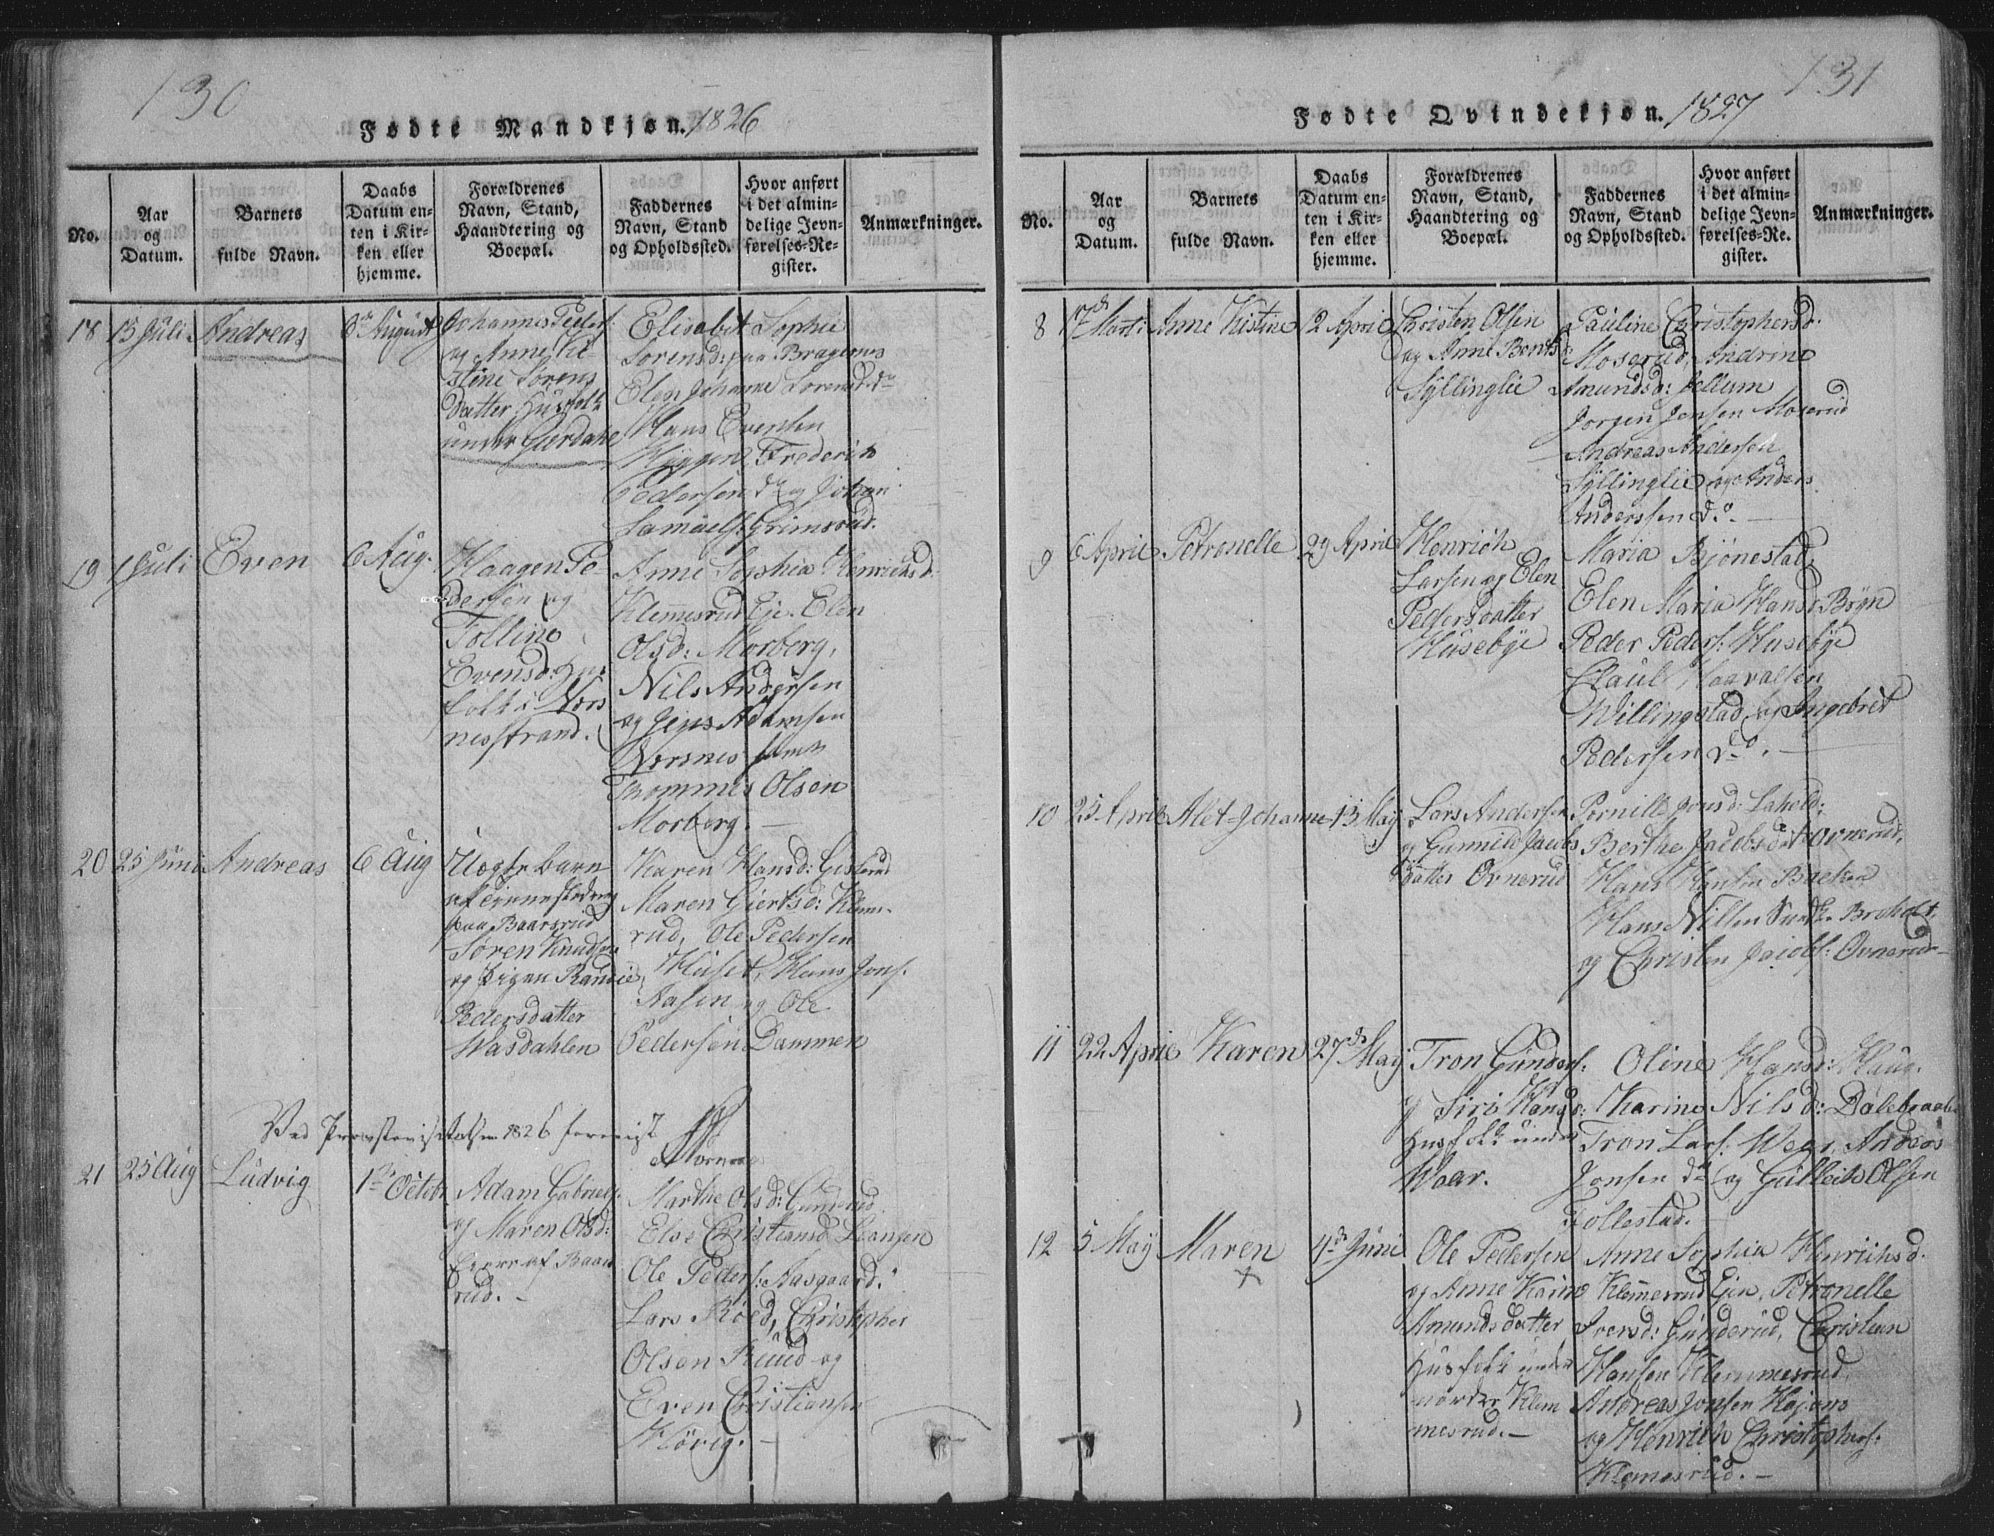 130
Fødte Mandkjøn. 1826
No.
Aar og Datum.
Barnets fulde Navn.
Daabs Datum enten i Kirken eller hjemme.
Forældrenes Navn, Stand, Haandtering og Boepæl.
Faddernes Navn, Stand og Opholdssted.
Hvor anført i det almindelige Jevnførelses-Register.
Anmærkninger.
18
15 Juli
Andreas
6te August
Johannes Peders:
og Anne Ki-
stine Sørens
Datter Husfolk
under Gjerdahl
Elisabet Sophie
Sorensd: paa Bragernes
Elen Johanne Sorensd. do
Hans Evensen
Frederik
Pedersen do og Johan
Samuels: Grimsrud.
19
1 Juli
Even
6 Aug.
Haagen Pe-
dersen og
Tolline
Evensd: Hus
folk i Nors
nesstrand.
Anne Sophia Henrichsd:
Klemmesrud Eje. Elen
Olsd: Morberg,
Nils Andersen
og Jens Adamsen
Norsnes samt
Thommes Olsen
Morberg. —
20
25 Juni
Andreas
6 Aug
Uægte Barn
af tjenestedreng
paa Baarsrud
Søren Knudsen
og Pigen Randie
Pedersdatter
Wasdahlen
Karen Hansd: Gislerud
Maren Giertsd: Klem-
rud, Ole Pedersen
Huset, Hans Jons:
Aasen og Ole
Pedersen Dammen
Ved Provstevisitatsen 1826 foreviist
21
25 Aug
Ludvig
1te Octobr
Adam Gabriels:
og Maren Olsd:
af Baar
rud. —
Marthe Olsd: Gunnerud
Else Christiansd
Ole Peders: Aasgaard.
Lars Røed, Christopher
Olsen Ruud og
Even Christiansen
Høvig. —
131
Fødte Qvindekjøn. 1827
No.
Aar og Datum.
Barnets fulde Navn.
Daabs Datum enten i Kirken eller hjemme.
Forældrenes Navn, Stand, Haandtering og Boepæl.
Faddernes Navn, Stand og Opholdssted.
Hvor anført i det almindelige Jevnførelses-Register.
Anmærkninger.
8
17de Mart:
Anne Kistine
12 April
Christen Olsen
og Anne Bentsd:
Syllinglie
Pauline Christophersd.
Moserud, Andrine
Amundsd: Jellum
Jorgen Jensen Moserud
Andreas Andersen
Syllinglie og Anders
Anderssen do. —
9
6 April
Petronelle
29 April
Henrich
Larsen og Elen
Pedersdatter
Husebye
Maria Bjønestad,
Elen Maria Hansd: Byn
Peder Peders: Husebye
Claul Haavalsen
Willingstad og Ingebret
Pedersen do. —
10
25 April
Alet Johanne
13 May
Lars Andersen
og Gunnild Jacobs
datter Ovnerud
Pernill Jensd: Lahold:
Berthe Jacobsdatter Ovnerud,
Hans Hansen Backen
Hans Nilsen Braholt,
og Christen Jacobs: Ovnerud —
11
22 April
Karen
27de May
Tron Gunders:
og Siri Hansd:
Husfolk under
Wear.
Oline Hansd: Haug.
Karine Nilsd: Dalebraaten
Tron Lars: Wear, Andreas
Jonsen do og Gulleik Olsen
Follestad.
12
5 May
Maren
4de Juni
Ole Pedersen
og Anne Karine
Amundsdatter
Husfolk under
nordre Klem
mesrud. —
Anne Sophia Henrichsd.
Klemmesrud Eje, Petronelle
Iversd: Gunderud, Christian
Hansen Klemmesrud,
Andreas Jonsen Høgaas
og Henrich Christophers:
Klemesrud. —